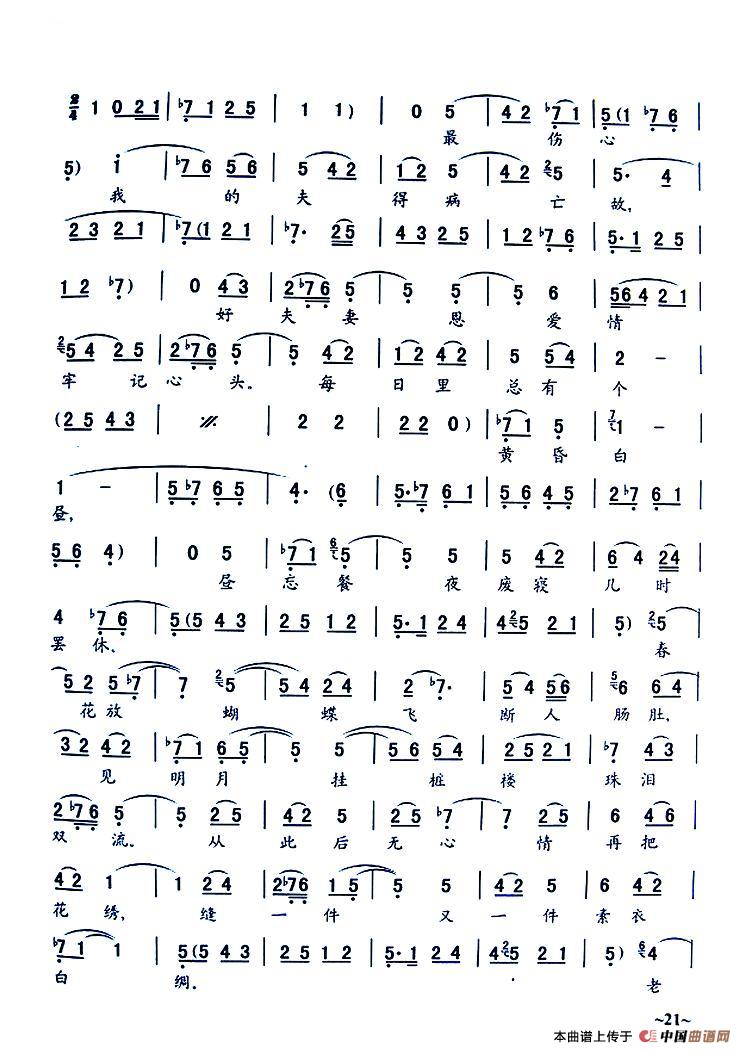 2/4 1 0 2 1 | ♭7 1 2 5 | 1 1) | 0 5 | 4 2 ♭7 1 | 5 (1 ♭7 6 1 |
最 伤 心
5) i | ♭7 6 5 6 | 5 4 5 | 1 2 5 | 5 4 2 2 5 | 5· 4 |
我 的 夫 得 病 亡 故,
2 3 2 1 | ♭7 (1 2 1 | ♭7· 2 5 | 4 3 2 5 | 1 2 ♭7 6 | 5· 1 2 5 |
1 2 ♭7) | 0 4 3 | 2 ♭7 6 5 | 5 5 | 5 6 | 5 6 4 2 1 |
好 夫 妻 恩 爱 情
2 5 4 2 5 | 2 ♭7 6 5 | 5 4 2 | 1 2 4 2 | 5 5 4 | 2 – |
牢 记 心 头. 每 日 里 总 有 个
(2 5 4 3 | 𝄎 | 2 2 | 2 2 0) | ♭7 1 5 | 7 1 – |
黄 昏 白
1 – | 5 ♭7 6 5 | 4· (6 | 5· ♭7 6 1 | 5 6 4 5 | 2 ♭7 6 1 |
昼,
5 6 4) | 0 5 | ♭7 1 6 5 | 5 5 | 5 4 2 | 6 4 2 4 |
昼 忘 餐 夜 废 寝 几 时
4 ♭7 6 | 5 (5 4 3 | 2 5 1 2 | 5· 1 2 4 | 4 2 5 2 1 | 5) 5 |
罢 休. 春
5 2 5 ♭7 | 7 2 5 | 5 4 2 4 | 2 ♭7· | 5 4 5 5 6 | 5 6 6 |
花 放 蝴 蝶 飞 断 人 肠 肚,
3 2 4 2 | ♭7 1 6 5 | 5 5 | 5 6 5 4 | 2 5 2 1 | ♭7 4 3 |
见 明 月 挂 桩 楼 珠 泪
2 ♭7 6 5 | 5 5 | 4 2 5 | 2 ♭7 | 7 5 | 6 4 6 |
双 流. 从 此 后 无 心 情 再 把
4 2 1 | 1 2 4 | 2 ♭7 6 1 5 | 5 5 | 4 2 5 | 6 6 4 |
花 绣, 缝 一 件 又 一 件 素 衣
♭7 1 1 | 5 (5 4 3 | 2 5 1 2 | 5· 1 2 4 | 4 2 5 2 1 | 5) 6 4 |
白 绸. 老
~21~
本曲谱上传于 中国曲谱网